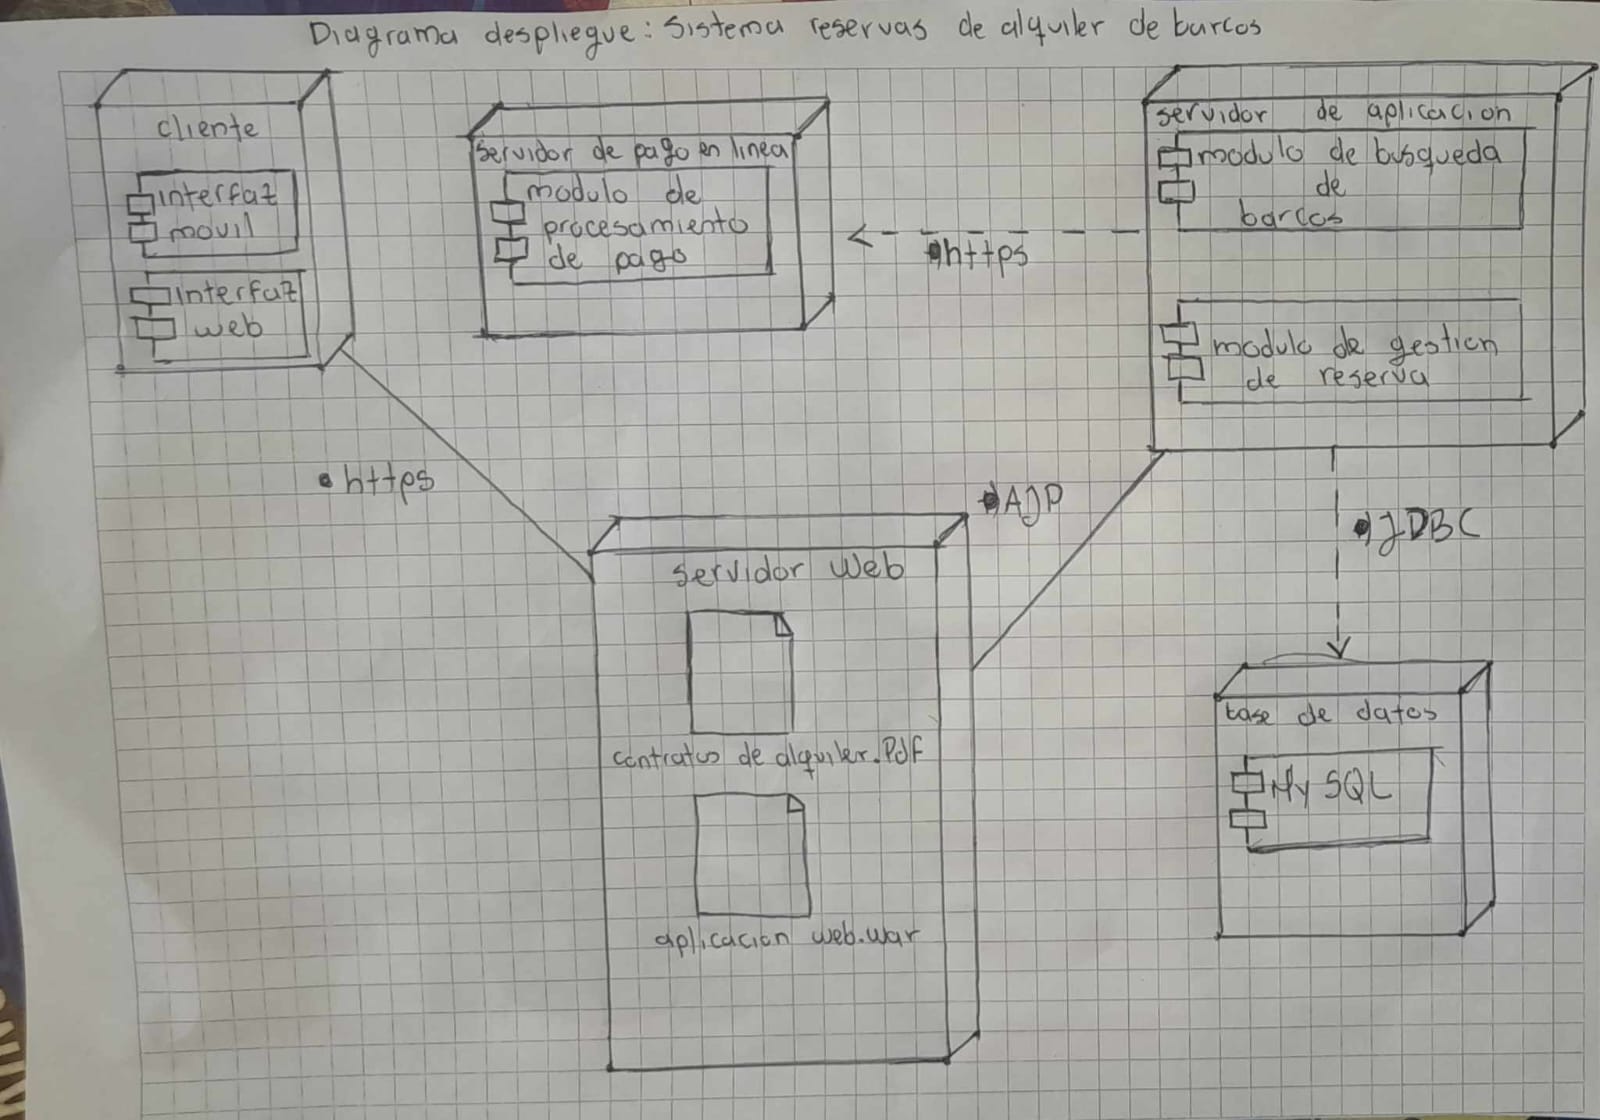 Diagrama despliegue: Sistema reservas de alquiler de barcos
cliente
interfaz
movil
interfaz
web
servidor de pago en linea
modulo de
procesamiento
de pago
https
servidor de aplicacion
modulo de busqueda
de
barcos
modulo de gestion
de reserva
https
AJP
JDBC
servidor web
contratos de alquiler.Pdf
aplicacion web.war
base de datos
My SQL